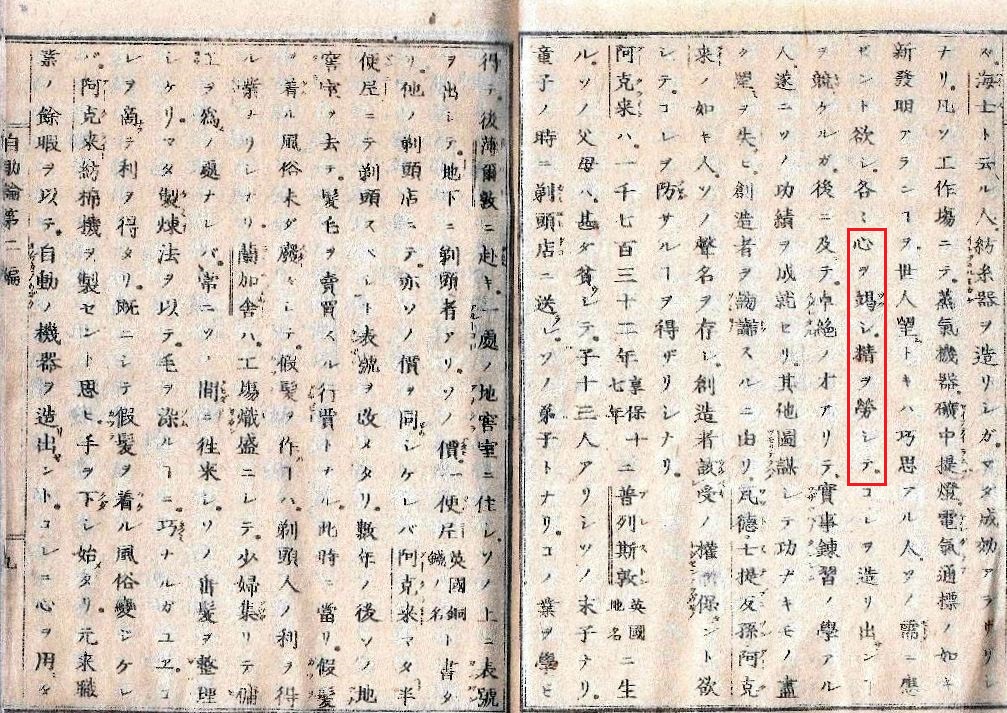 タ海士ト云ル人。紡糸器ヲ造リシガ。マダ成効アラザリシ
ナリ。凡ソ工作場ニテ。蒸氣機器。礦中提燈。電氣通標ノ如キ
新發明アランヿヲ。世人望トキハ。巧思アル人。ソノ需ニ應
ゼント欲シ。各〻心ヲ竭シ。精ヲ勞シテ。コレヲ造リ出ンヿ
ヲ競ケルガ。後ニ及テ。卓絶ノ才アリテ。實事錬習ノ學アル
人。遂ニソノ功績ヲ成就セリ。其他圖謀シテ功ナキモノ。盡
ク望ヲ失ヒ。創造者ヲ謝スルニ由リ。瓦德士提反孫阿克
来ノ如キ人。ソノ聲名ヲ存シ。創造者該受ノ權保ント欲
シテ。コレヲ防ザルヿヲ得ザリシナリ。
阿克来ハ。一千七百三十二年享保十七年ニ普列斯敦英國地名ニ生
ル。ソノ父母ハ。甚ダ貧シテ。子十三人アリシソノ末子ナリ。
童子ノ時ニ剃頭店ニ送レ。ソノ弟子トナリ。コノ業ヲ學ビ
得テ。後薄爾敦ニ赴キ。一處ノ地窖室ニ住シ。ソノ上ニ表號
ヲ出シテ。地下ニ剃頭者アリ。ソノ價一偄尼英國銅錢ノ名ト書タ
リ。他ノ剃頭店ニテ。亦ソノ價ヲ同シケレバ。阿克来マタ半
偄尼ニテ剃頭スベシト表號ヲ改メタリ。數年ノ後。ソノ地
窖室ヲ去テ。髮毛ヲ賣買スル行賈トナル。此時ニ當リ。假髮
ヲ着ル風俗未ダ廢レズシテ。假髮ヲ作ヿハ。剃頭人ノ利ヲ得
ル業ナリシナリ。蘭加舎ハ。工塲熾盛ニシテ。少婦集リテ傭
工ヲ爲ノ處ナレバ。常ニソノ間ニ往来シ。ソノ髮ヲ整理
シケリ。マタ製煉法ヲ以テ。毛ヲ染ルヿニ巧ナルガユヱニ
レヲ商テ利ヲ得タリ。既ニシテ假髮ヲ着ル風俗變ジケレ
バ。阿克来紡棉機ヲ製セント思ヒ。手ヲ下シ始タリ。元来職
業ノ餘暇ヲ以テ。自動ノ機器ヲ造出ント。コレニ心ヲ用タ
自助論第二編
九